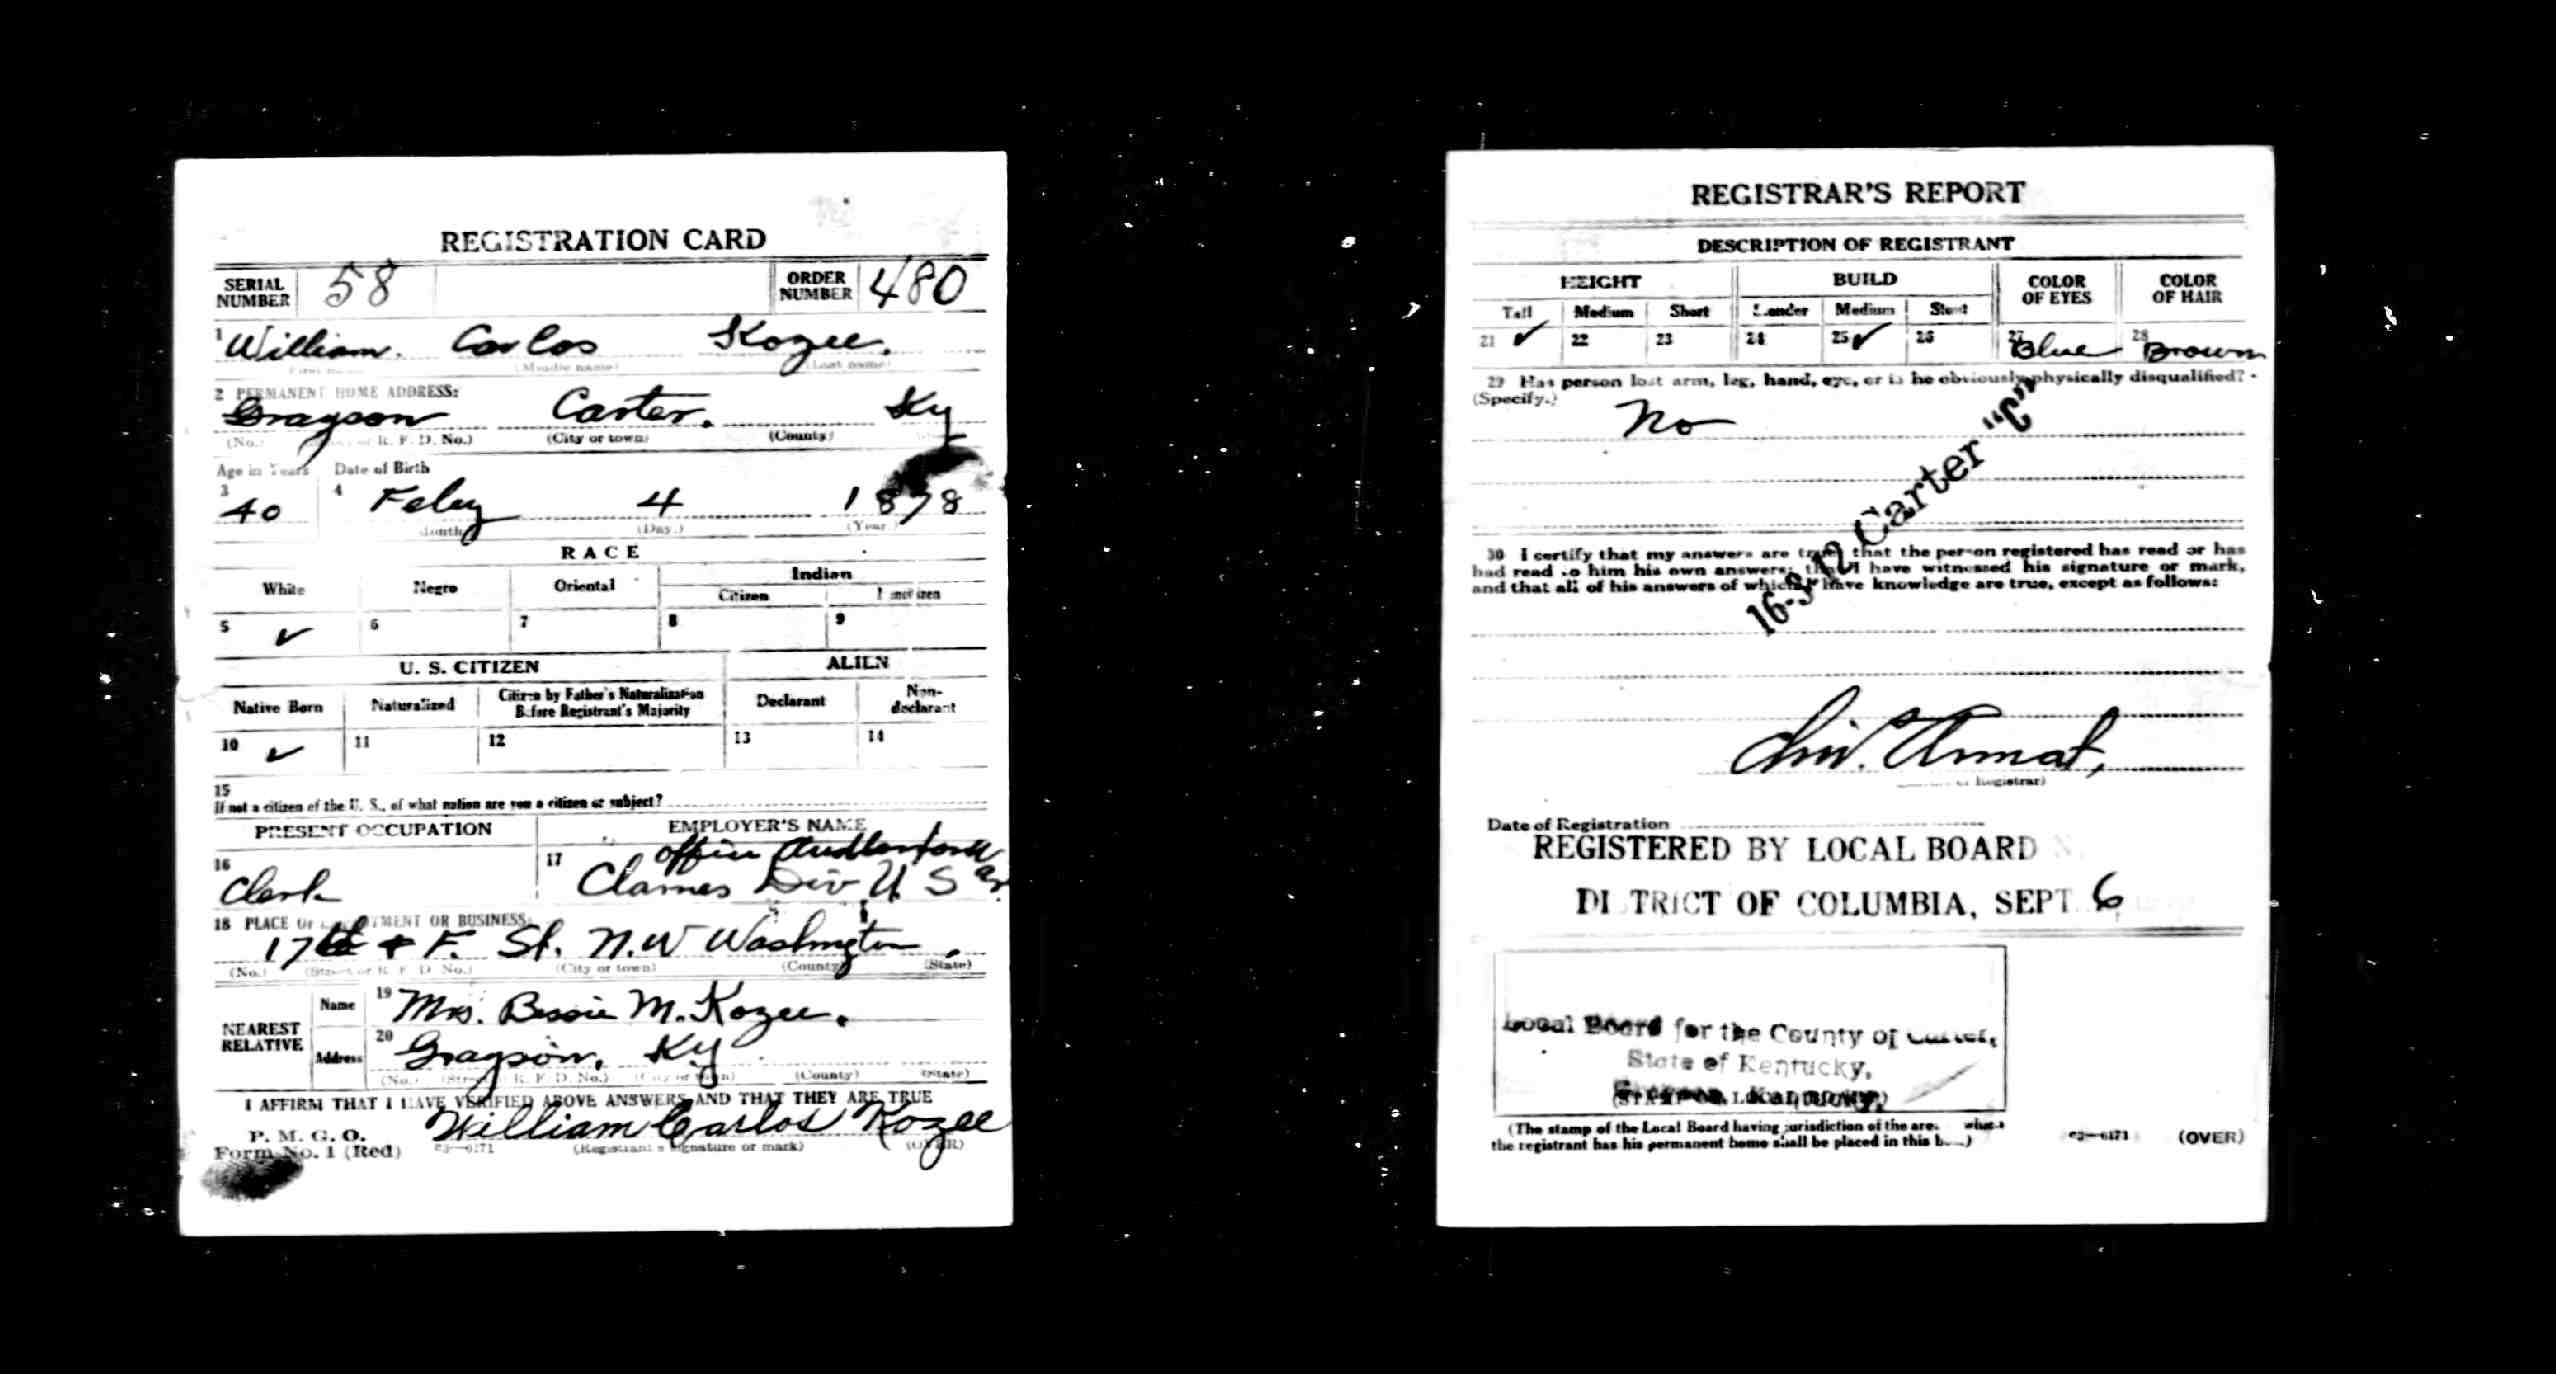 REGISTRATION CARD
SERIAL NUMBER 58 ORDER NUMBER 480
1 William. Carlos Kozee.
(Middle name) (Last name)
2 PERMANENT HOME ADDRESS:
Grayson Carter. Ky
(No.) R. F. D. No.) (City or town) (County)
Age in Years Date of Birth
3 40 4 Feby 4 1878
(Month) (Day.) (Year.)
RACE
White Negro Oriental Indian
Citizen
5 ✓ 6 7 8 9
U. S. CITIZEN ALIEN
Native Born Naturalized Citizen by Father's Naturalization Before Registrant's Majority Declarant Non-declarant
10 ✓ 11 12 13 14
15
If not a citizen of the U. S., of what nation are you a citizen or subject?
PRESENT OCCUPATION EMPLOYER'S NAME
16 Clerk 17 office
Claimes Div U S
18 PLACE OF EMPLOYMENT OR BUSINESS:
17th + F. St. N.W Washington
(No.) (Street or R. F. D. No.) (City or town) (County) (State)
NEAREST RELATIVE
Name 19 Mrs. Bessie M. Kozee.
Address 20 Grayson, Ky
(No.) R. F. D. No.) (City or town) (County) (State)
I AFFIRM THAT I HAVE VERIFIED ABOVE ANSWERS AND THAT THEY ARE TRUE
P. M. G. O.
Form No. 1 (Red) 03—6171 William Carlos Kozee
(Registrant's signature or mark) (OVER)
REGISTRAR'S REPORT
DESCRIPTION OF REGISTRANT
HEIGHT BUILD COLOR OF EYES COLOR OF HAIR
Tall Medium Short Slender Medium Stout
21 ✓ 22 23 24 25 ✓ 26 27 Blue 28 Brown
29 Has person lost arm, leg, hand, eye, or is he obviously physically disqualified?
(Specify.) No
16-3-12 Carter "C"
30 I certify that my answers are true, that the person registered has read or has
had read to him his own answers, that I have witnessed his signature or mark,
and that all of his answers of which I have knowledge are true, except as follows:
Registrar)
Date of Registration
REGISTERED BY LOCAL BOARD
DISTRICT OF COLUMBIA, SEPT. 6
Local Board for the County of Carter,
State of Kentucky,
(The stamp of the Local Board having jurisdiction of the area
the registrant has his permanent home shall be placed in this
03—6171 (OVER)